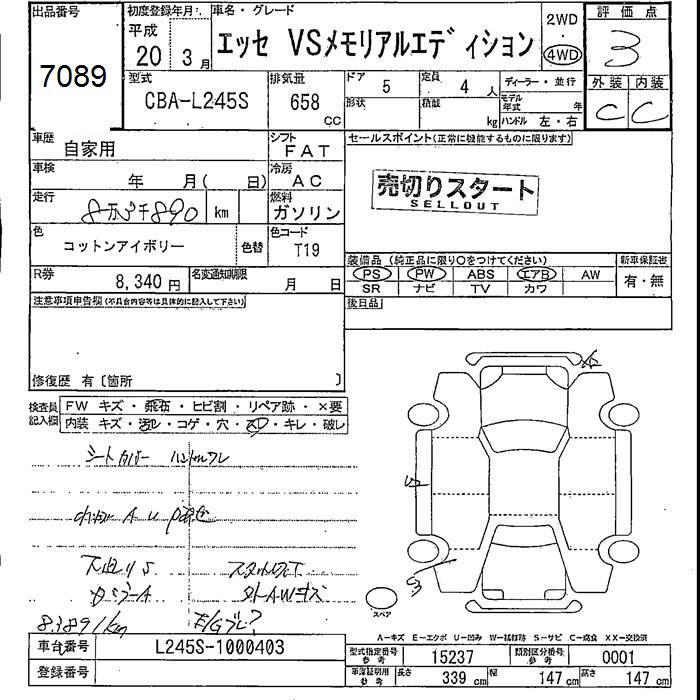 出品番号
7089
初度登録年月
平成
20 3月
車名・グレード
エッセ VSメモリアルエディション
2WD
4WD
評価点
3
外装 内装
C C
型式
CBA-L245S
排気量
658
CC
ドア
5
形状
定員
4人
積載
kg
ディーラー・並行
モデル年式 年
ハンドル 左・右
車歴
自家用
シフト
FAT
車検
年 月( 日)
冷房
AC
走行
8万3千890 km
燃料
ガソリン
色
コットンアイボリー
色替
色コード
T19
R券
8,340円
名変通知期限
月 日
セールスポイント(正常に機能するものに限ります)
売切りスタート
SELLOUT
装備品 (純正品に限り○をつけてください)
新車保証書
PS PW ABS エアB AW
SR ナビ TV カワ
有・無
後日品
注意事項申告欄(不具合内容等は具体的に記入して下さい)
修復歴 有〔箇所 〕
検査員記入欄
FW キズ・飛石・ヒビ割・リペア跡・×要
内装 キズ・汚レ・コゲ・穴・スレ・キレ・破レ
シートカバー ハンドルスレ
下廻りS
83891km
スペア
A-キズ E-エクボ U-凹み W-補修跡 S-サビ C-腐食 XX-交換済
車台番号
L245S-1000403
登録番号
型式指定番号 参考
15237
類別区分番号 参考
0001
車庫証明用 参考
長さ 339 cm
幅 147 cm
高さ 147 cm